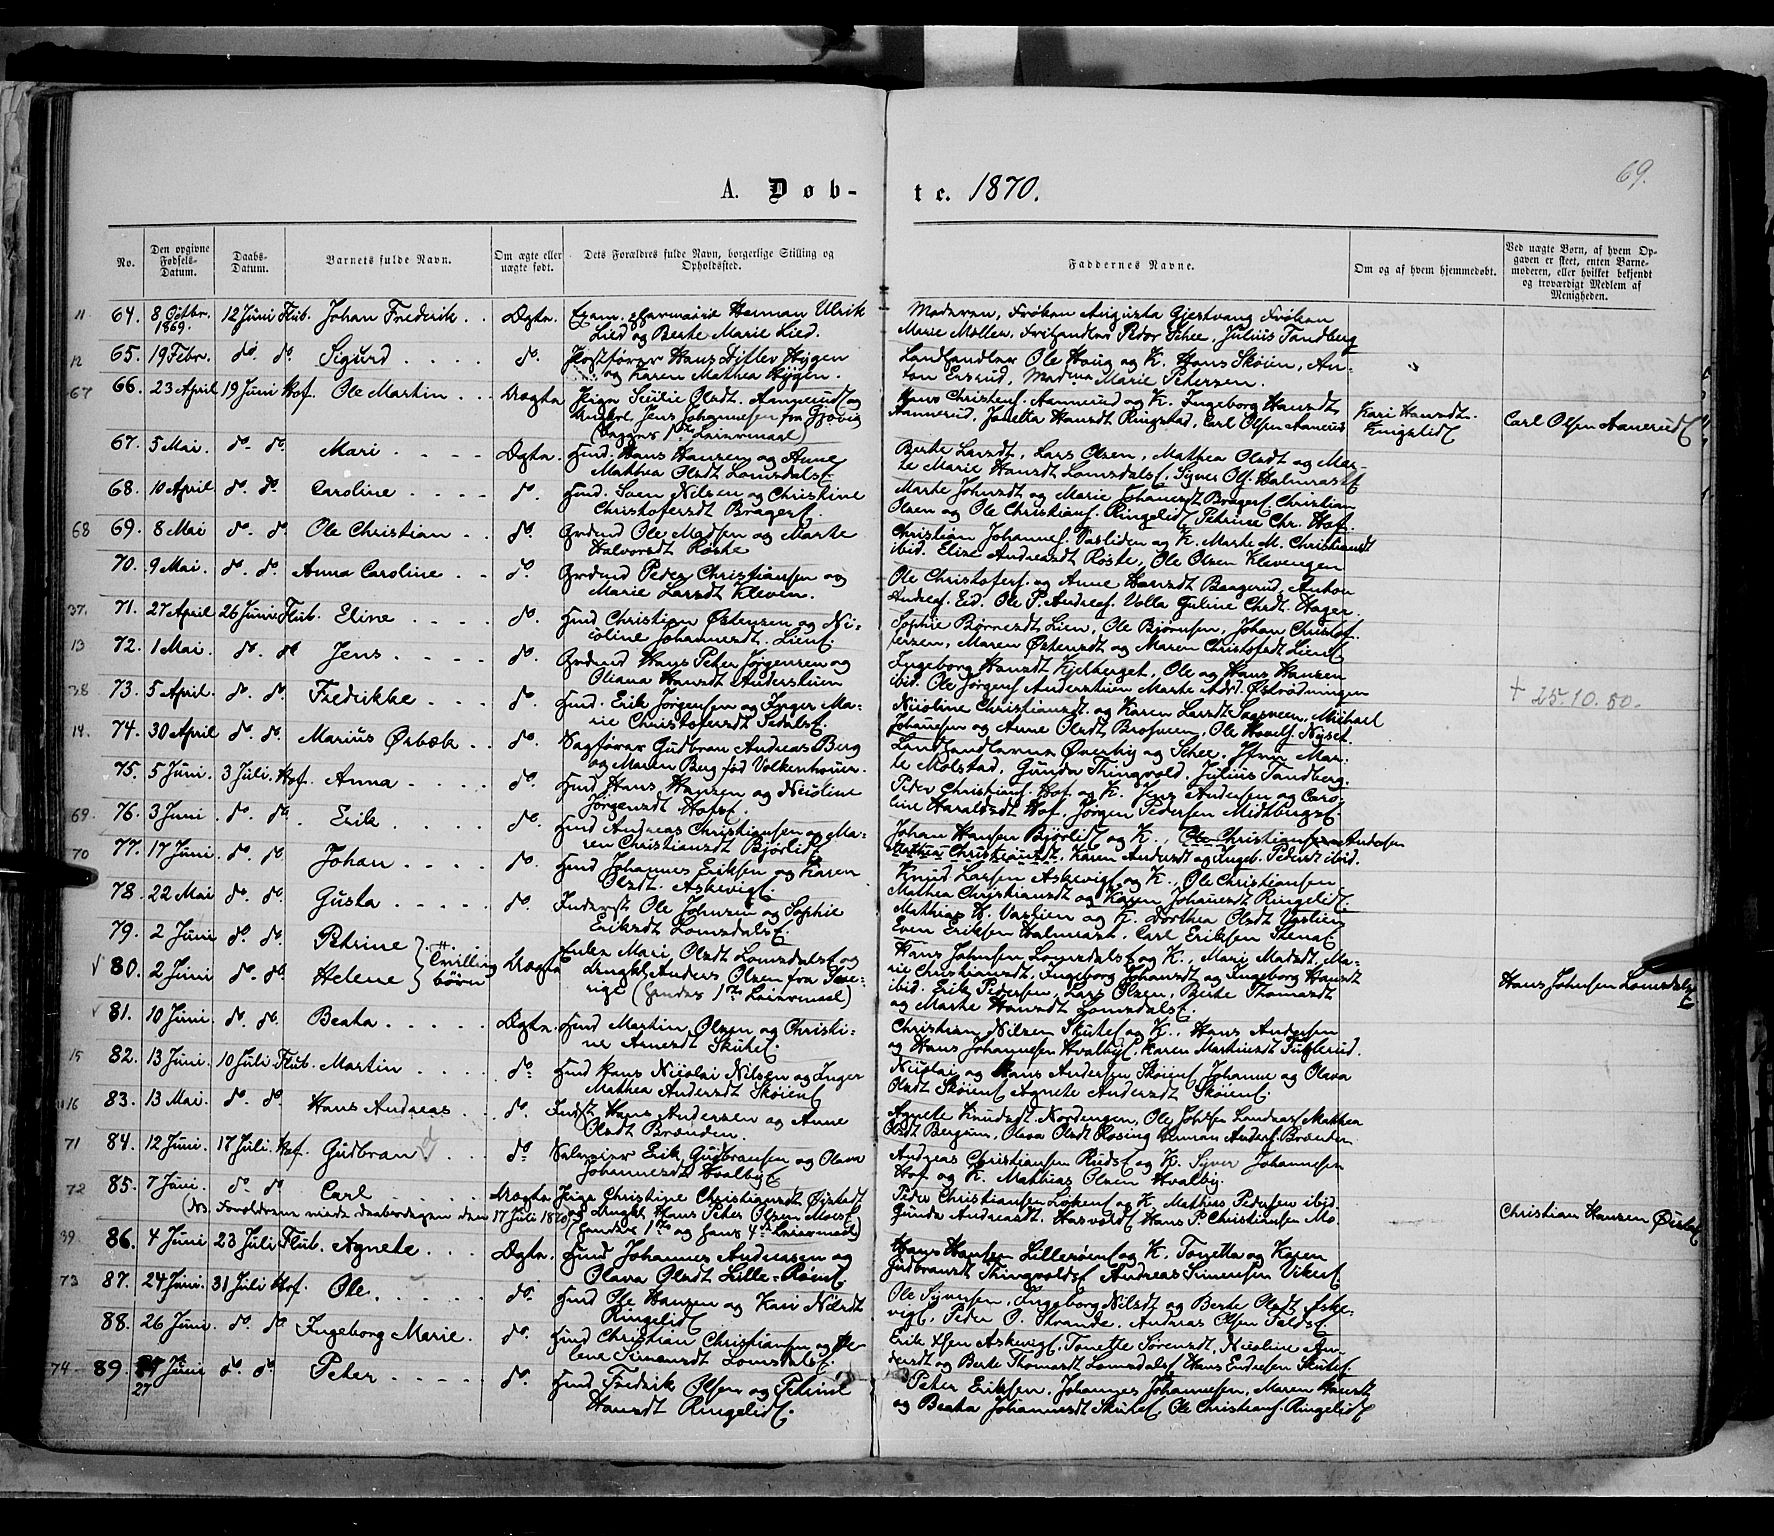 69.
A. Døb- te. 1870.
No.
Den opgivne Fødsels-Datum.
Daabs-Datum.
Barnets fulde Navn.
Om ægte eller uægte født.
Dets Forældres fulde Navn, borgerlige Stilling og Opholdssted.
Faddernes Navne.
Om og af hvem hjemmedøbt.
Ved uægte Børn, af hvem Opgaven er skeet, enten Barnemoderen, eller hvilket bekjendt og troværdigt Medlem af Menigheden.
11. 64. 8 Octbr. 1869. 12 Juni Flub. Johan Frederik. Ægte. Exam. Farmaceut Herman Ulrik
Lied og Berte Marie Lied.
Moderen, Frøken Augusta Gjestvang Frøken
Marie Møller, Frihandler Peder Schee, Julius Tandberg
12 65. 19 Febr. do. do. Sigurd do. Hans Ditlev Hygen
og Karen Mathea Hygen.
Landhandler Ole Haug og K. Hans Skøien, An-
ton Ersrud, Madme Marie Petersen.
67 66. 23 April 19 Juni Hof. Ole Martin Uægte Pige Sicilie Olsdt. Aannerud og
Ungkrl Jens Johannesen fra Gjøvig
(begges 1ste Leiermaal)
Hans Christens. Aannerud og K. Ingeborg Hansdt
Aannerud, Jonetta Hansdt Ringstad, Carl Olsen Aanerud
Kari Hansdt.
Ringelid
Carl Olsen Aanerud
67. 5 Mai. do. do. Mari Ægte Husmd. Hans Hansen og Anne
Mathea Olsdt Lomsdals.
Berte Larsdt, Lars Olsen, Mathea Olsdt og Mar-
te Marie Hansdt Lomsdals. Syver Ols. Halmrast
68. 10 April do. do. Caroline do. Husmd. Sven Nilsen og Christine
Christofersdt Brager.
Marte Johnsdt og Marie Johannesdt Brager Christian
Olsen og Ole Christians. Ringelid, Petrine Chr. Hof.
68 69. 8 Mai do. do. Ole Christian do. Grdmd Ole Madsen og Marte
Halvorsdt Røste
Christian Johannes. Vasliden og K. Marte M. Christiansdt
ibid. Elise Andreasdt Røste, Ole Olsen Klevengen
70. 9 Mai. do. do. Anna Caroline do. Grdmd Peder Christiansen og
Marie Larsdt Kleven.
Ole Christofers. og Anne Hansdt Baagerud, Anton
Andreas. Eid. Ole P. Andreas. Volla Guline Chrdt. Hager.
37. 71. 27 April 26 Juni Flub. Eline do. Husmd Christian Østensen og Ni-
coline Johannesdt. Lien.
Sophie Bjørnesdt Lien, Ole Bjørnsen, Johan Christof-
fersen, Maren Østensdt og Maren Christofsdt Lien
13 72. 1 Mai. do. do. Jens do. Grdmd Hans Peter Jørgensen og
Oliana Hansdt Anderstuen
Ingeborg Hansdt Kjelberget, Ole og Hans Hansen
ibid. Ole Jørgens. Anderstuen Marte Andrd. Østrødningen
38 73. 5 April. do. do. Fredrikke do. Husmd. Erik Jørgensen og Inger Ma-
rie Christofersdt Sedals.
Nicoline Christiansdt. og Karen Larsdt Sagsveen, Michael
Johannesen og Anne Olsdt Brofuen, Ole Hovels. Nyset.
† 25.10.50.
14. 74. 30 April do. do. Marius Ørbæk do. Sagfører Gudbran Andreas Berg
og Maren Berg fød Volkenhouer.
Landhandlerne Øverby og Schee, Mar-
te Molstad, Gunda Thingvold, Julius Tandberg.
75. 5 Juni. 3 Juli. Hof. Anna do. Husmd Hans Hansen og Nicoline
Jørgensdt Hofs.
Peder Christians. Hof og K. Jens Andersen og Caro-
line Haraldsdt Hof, Jørgen Pedersen Midtbergs.
69. 76. 3 Juni do. do. Erik do. Husmd Andreas Christiansen og Ma-
ren Christiansdt Bjørlid
Johan Hansen Bjørlid og K., Christian Andersen
Mathea Christiansdt, Karen Andersdt og Ingeb. Pedersdt ibid.
70 77. 17 Juni. do. do. Johan do. Husmd Johannes Eriksen og Karen
Olsdt. Askevig.
Knud Larsen Askevig og K., Ole Christiansen
Mathea Christiansdt og Karen Johansdt Ringelid.
78. 22 Mai do. do. Gusta do. Inderst Ole Johnsen og Sophie
Eriksdt Lomsdals.
Mathias H. Vaslien og K. Dorthea Olsdt Vaslien
Even Eriksen Halmrast, Carl Eriksen Stena
79. 2 Juni do. do. Petrine } Tvilling
√ 80. 2 Juni do. do. Helene } børn Uægte Enke Mari Olsdt Lomsdals og
Ungkl Anders Olsen fra Sve-
rige (hendes 1ste Leiermaal)
Hans Johnsen Lomsdals og K., Mari Madsdt, Ma-
rie Christiansdt, Ingeborg Johansdt og Ingeborg Hansdt
ibid. Erik Pedersen, Lars Olsen, Berte Thomasdt
og Marte Hansdt Lomsdals.
Hans Johnsen Lomsdals
√ 81. 10 Juni do. do. Beata Ægte Husmd Martin Olsen og Christi-
ne Arnesdt Skute.
Christian Nilsen Skute og K., Hans Andersen
og Hans Johannesen Hvalby, Karen Martinsdt Fuglerud.
15 82. 13 Juni. 10 Juli Flub. Martin do. Husmd Hans Nicolai Nilsen og Inger
Mathea Andersdt Skøien
Nicolai og Hans Andersen Skøien, Johanne og Olava
Olsdt Skøien Agnete Andersdt Skøien.
16 83. 13 Mai. do. do. Hans Andreas do. Indst Hans Andersen og Anne
Olsdt Brænden.
Agnete Knudsdt. Nordengen, Ole Johs. Landaas Mathea
Olsdt Bergum, Olava Olsdt Rosing Herman Anders. Brænden
71 84. 12 Juni. 17 Juli. Hof. Gudbran do. Selveier Erik Gudbransen og Olava
Johannesdt Hvalby
Andreas Christiansen Ruds og K. Syver Johannesen
Hof og K. Mathias Olsen Hvalby.
72 85. 7 Juni. do. do. Carl Uægte Pige Christine Christiansdt Øistad
og Ungkl Hans Peter Olsen Moes
(Forældrene viede daabsdagen den 17 Juli 1870) (hendes 1ste og hans 4de Leiermaal)
Peder Christiansen Løken og K. Mathias Pedersen ibid.
Gunda Andreasdt. Hasvold Hans P. Christiansen Mo.
Christian Hansen
39. 86. 4 Juni 23 Juli Flub. Agnete Ægte. Husmd Johannes Andreasen og
Olava Olsdt Lille-Røine
Hans Hansen Lillerøien og K. Tonetta og Karen
Gudbransdt Thingvolds Andreas Simensen Viken
73 87. 24 Juni. 31 Juli Hof. Ole do. Husmd Ole Hansen og Kari Nilsdt
Ringelid
Ole Syversen, Ingeborg Nilsdt og Berte Olsdt Aske-
vig, Peder O. Strande, Andreas Olsen Felds.
88. 26 Juni. do. do. Ingeborg Marie do. Husmd Christian Christiansen og He-
lene Simensdt Lomsdals.
Erik Olsen Askevig, Tonette Sørensdt, Nicoline An-
dersdt og Berte Thomasdt Lomsdals, Hans Endresen Skute
74 89. 27 Juni do. do. Peter do. Husmd Fredrik Olsen og Petrine
Hansdt Ringelid.
Peter Eriksen, Johannes Johannesen, Maren Hansdt
og Beata Johannesdt Skute Ole Christians. Ringelid